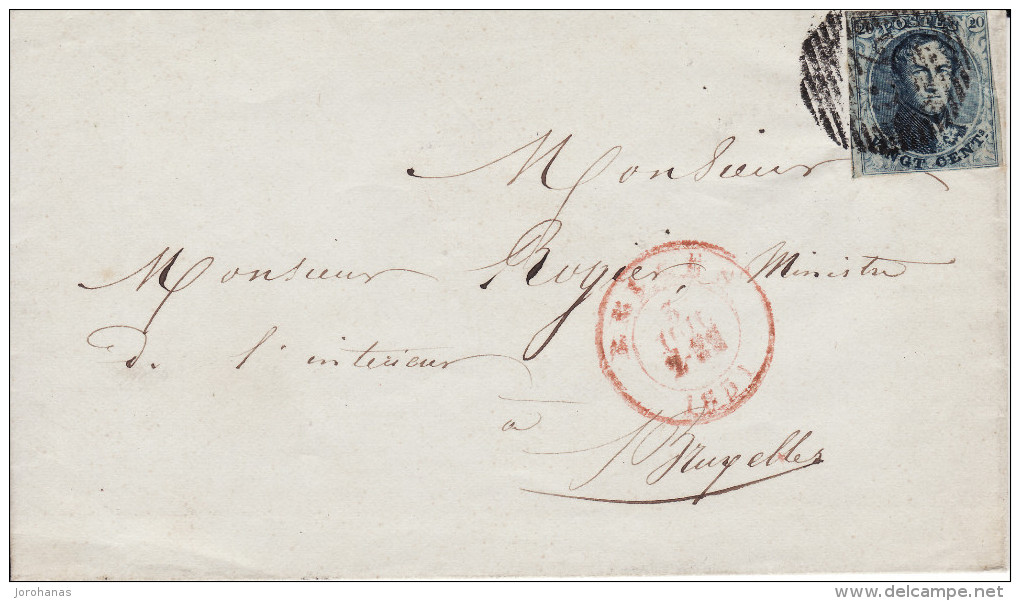 20 POSTES 20
VINGT CENTS
Monsieur
Monsieur Rogier, Ministre
de l'interieur
à
Bruxelles
1851
jorohanas
www.delcampe.net